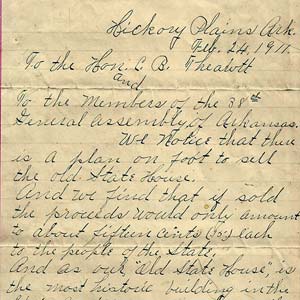 Hickory Plains Ark.
Feb. 24, 1911.
To the Hon. C. B. Thealott
And
To the Members of the 38th
General Assembly of Arkansas.
We Notice that there
is A plan on foot to sell
the old State House.
And we find that if sold
the proceeds would only amount
to about fifteen cents (15¢) each
to the people of the State,
And as our "Old State House", is
the most historic building in the